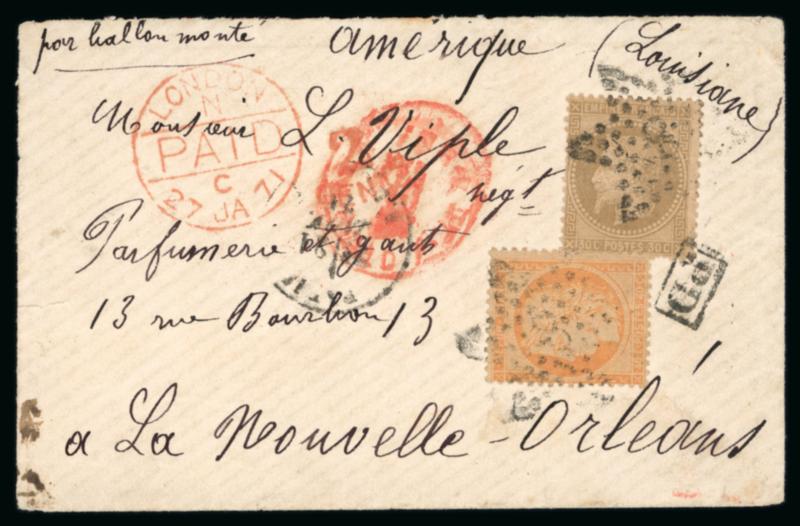 par ballon monté
Amérique (Louisiane)
LONDON
N
PAID
C
27 JA 71
Monsieur L. Viple
négt
Parfumerie et gants
13 rue Bourbon 13
a La Nouvelle-Orléans
30C POSTES 30C